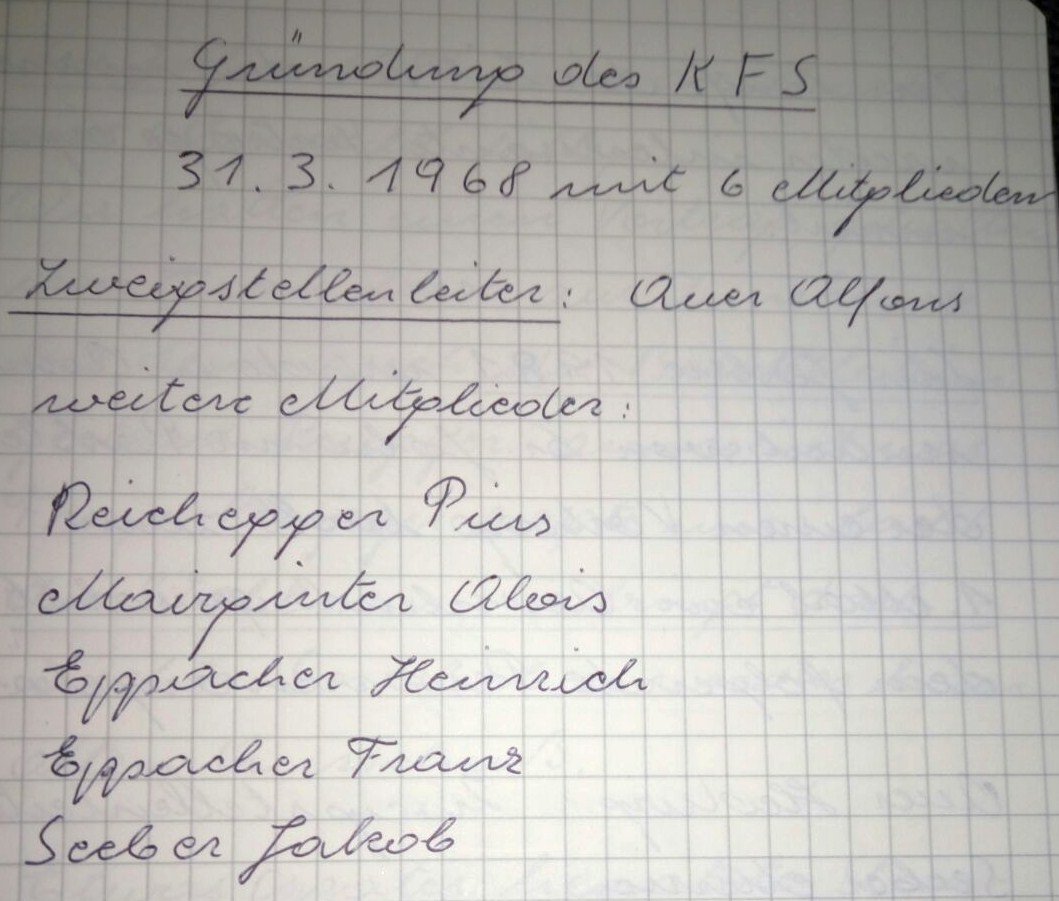 Gründung des KFS
31.3.1968 mit 6 Mitgliedern
Zweigstellenleiter: Auer Alfons
weitere Mitglieder:
Reichegger Pius
Mairginter Alois
Eppacher Heinrich
Eppacher Franz
Seeber Jakob